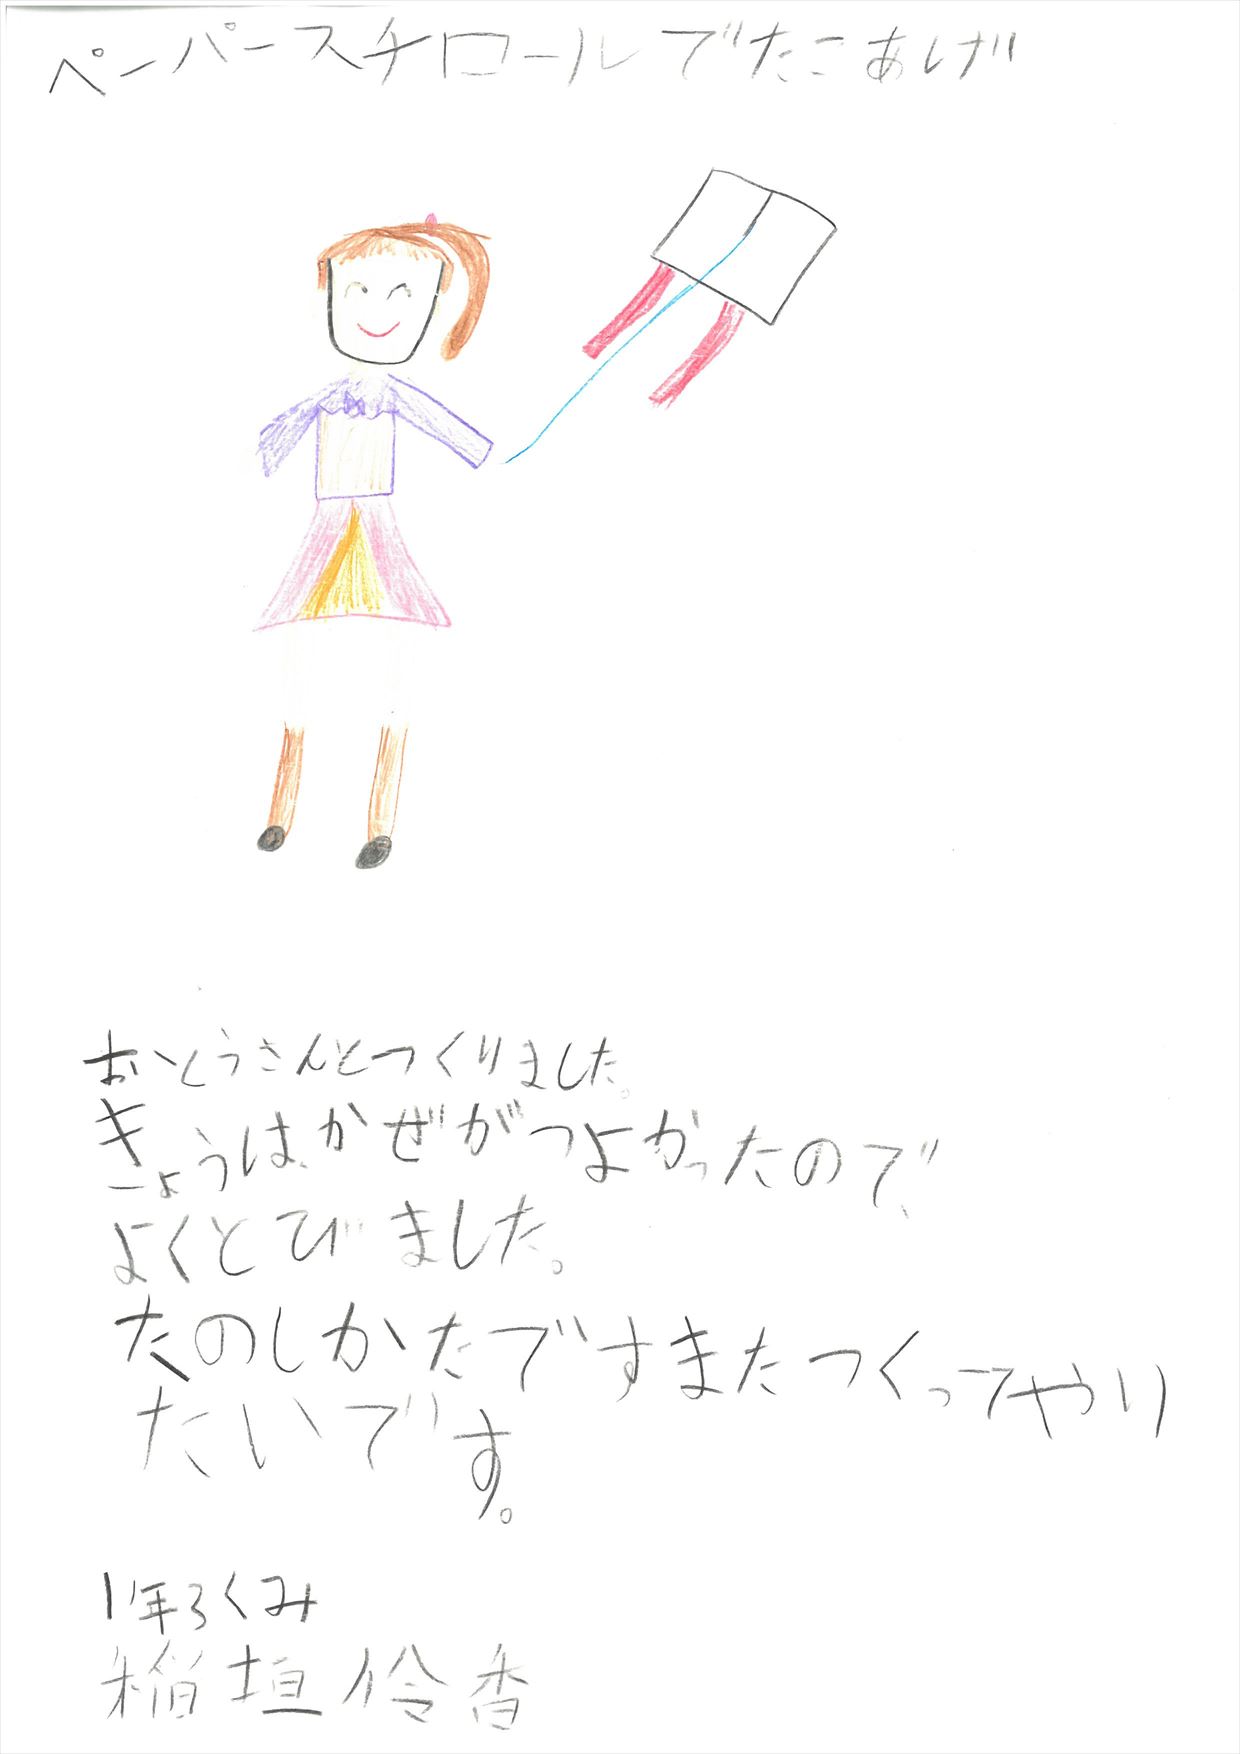 ペーパースチロールでたこあげ
おとうさんとつくりました。
きょうは、かぜがつよかったので、
よくとびました。
たのしかたですまたつくってやり
たいです。
1年ろくみ
稲垣伶香